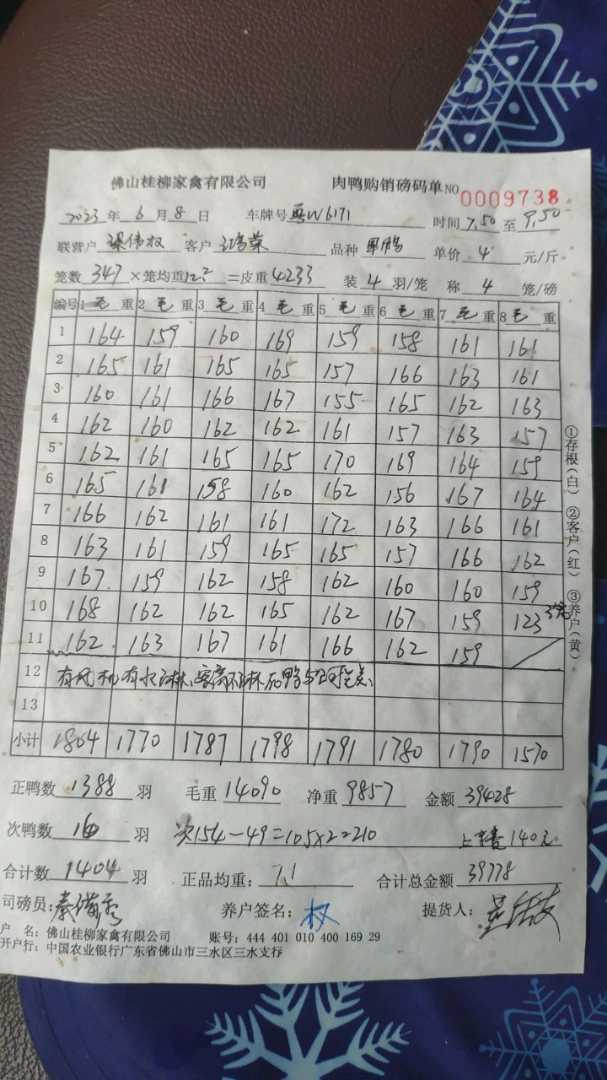 佛山桂柳家禽有限公司 肉鸭购销磅码单 NO 0009738
2023年 6月 8日 车牌号 粤W6171 时间 7.50 至 9.50
联营户 梁伟权 客户 鸿荣 品种 单价 4 元/斤
笼数 347 ×笼均重 12.2 =皮重 4233 装 4 羽/笼 称 4 笼/磅
编号 1 毛 重 2 毛 重 3 毛 重 4 毛 重 5 毛 重 6 毛 重 7 毛 重 8 毛 重
1 164 159 160 169 159 158 161 161
2 165 161 165 165 157 166 163 161
3 160 161 166 167 155 165 162 163
4 162 160 162 162 161 157 163 157
5 162 161 165 165 170 169 164 159
6 165 161 158 160 162 156 167 164
7 166 162 161 161 172 163 166 161
8 163 161 159 165 165 157 166 162
9 167 159 162 158 162 160 160 159
10 168 162 162 165 162 167 159 123 3笼
11 162 163 167 161 166 162 159
12 有风机有水淋
13
小计 1804 1770 1787 1798 1791 1780 1790 1570
正鸭数 1388 羽 毛重 14090 净重 9857 金额 39428
次鸭数 16 羽 次154-49=105×2=210 140元
合计数 1404 羽 正品均重: 7.1 合计总金额 39778
司磅员: 养户签名: 权 提货人:
户 名: 佛山桂柳家禽有限公司 账号: 444 401 010 400 169 29
开户行: 中国农业银行广东省佛山市三水区三水支行
①存根(白) ②客户(红) ③养户(黄)